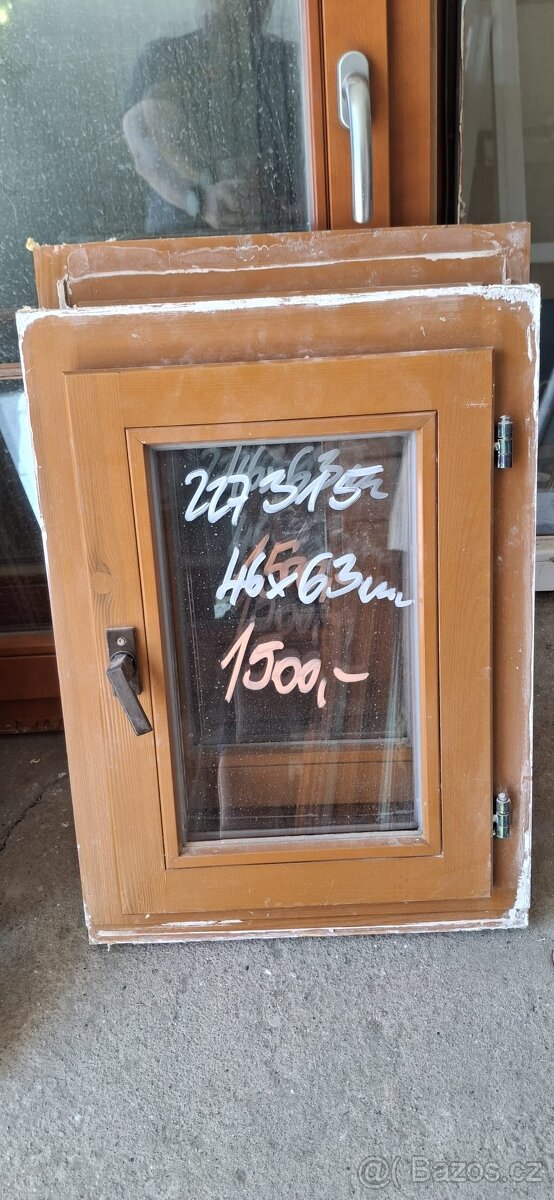 227315
46x63cm
1500,-
@( Bazos.cz